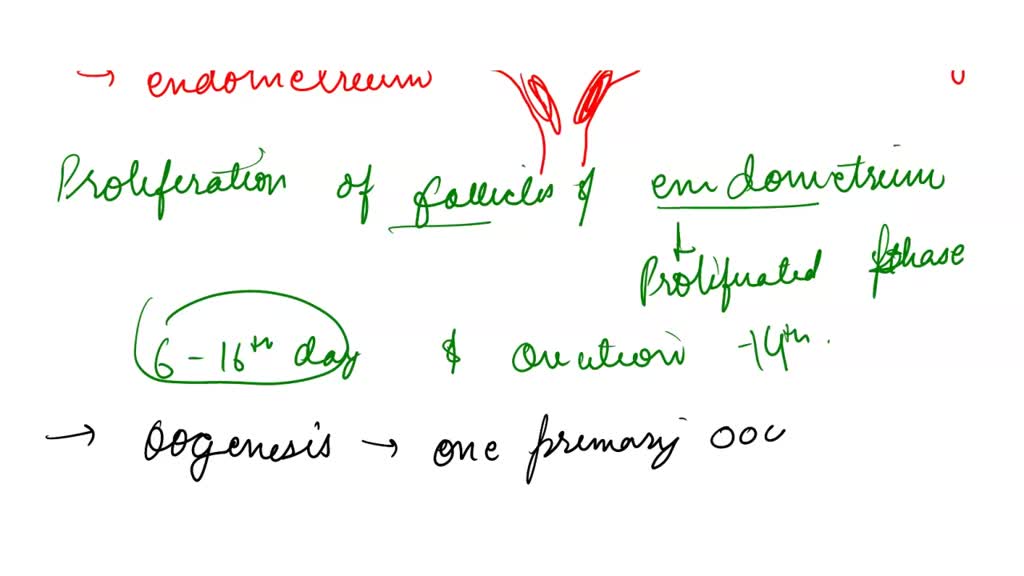 → endometreum
Proliferation of follicles & endometrium
Prolifuated phase
6-16th day & Ovution -14th.
→ Oogenesis → one primary ooc